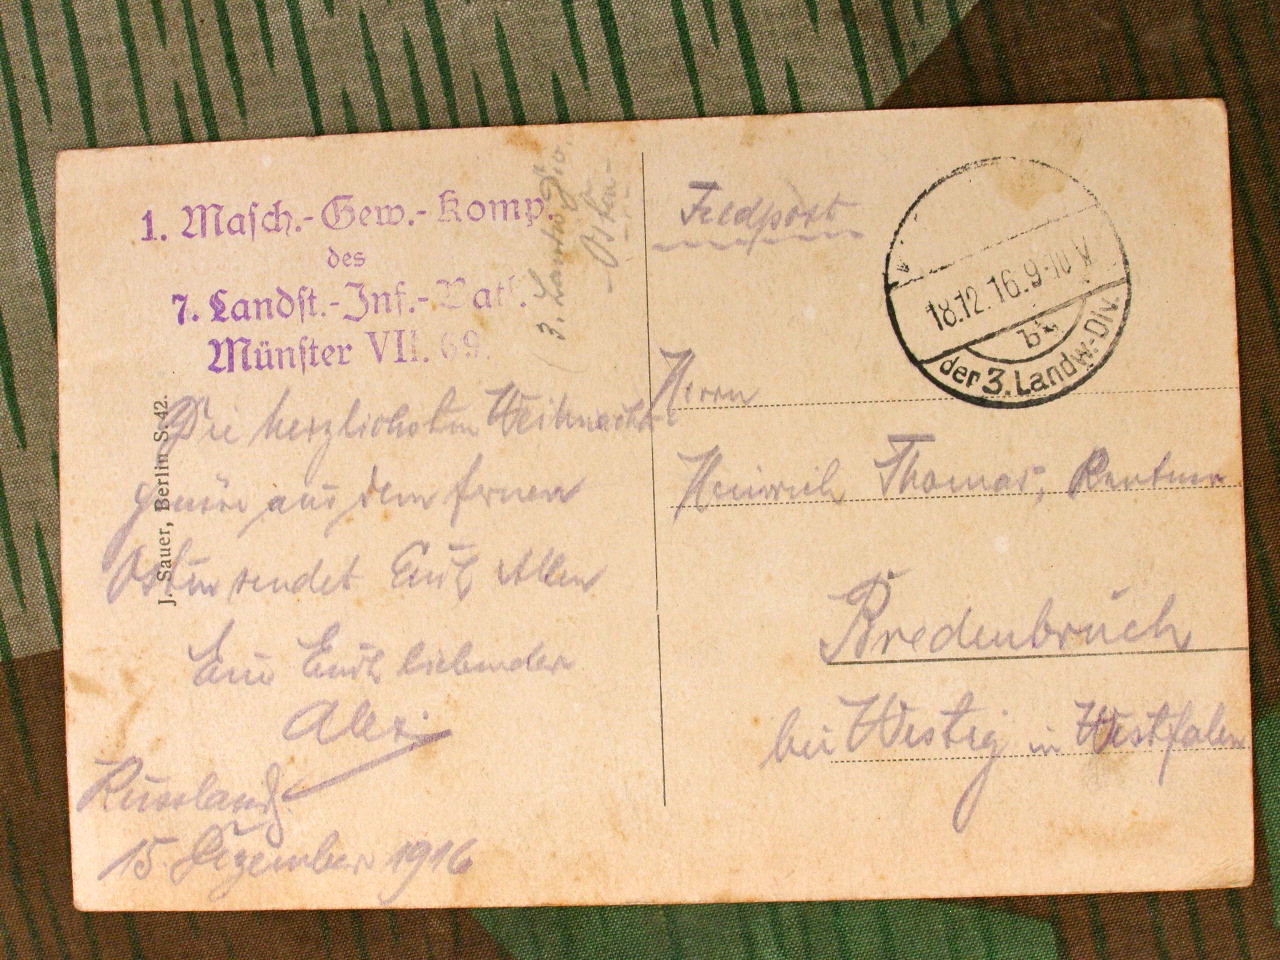 1. Masch.-Gew.-Komp.
des
7. Landst.-Inf.-Batl.
Münster VII. 69.
3. Landw. Div.
- Osten -
Die herzlichsten Weihnachts
grüße aus dem fernen
Osten sendet Euch Allen
Euer Euch liebender
Alex.
Russland
15. Dezember 1916
J. Sauer, Berlin S. 42.
Feldpost
18.12.16. 9-10 V.
der 3. Landw.-Div.
Herrn
Heinrich Thomas, Rentner
Bredenbruch
bei Westig in Westfalen